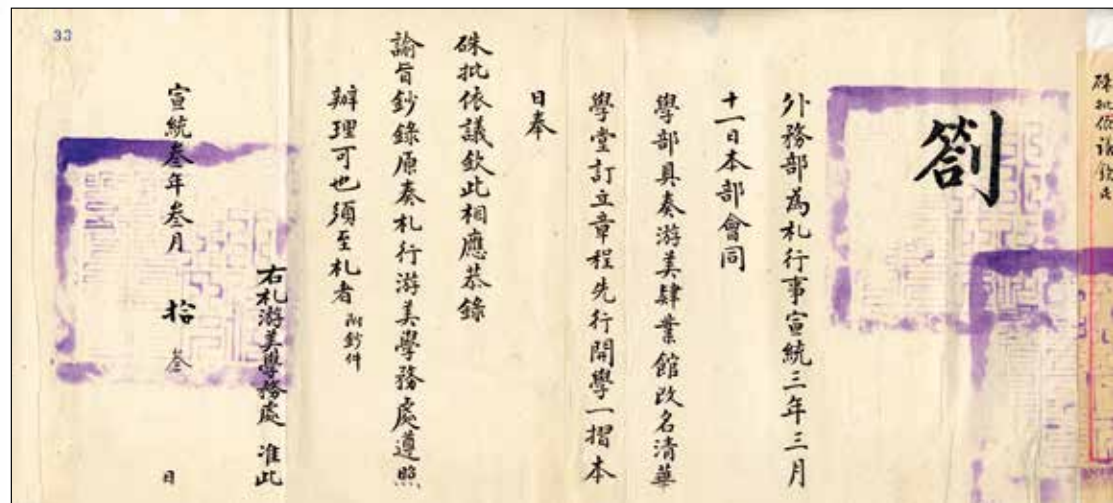 硃批依議欽此
劄
外務部為札行事宣統三年三月
十一日本部會同
學部具奏游美肄業館改名清華
學堂訂立章程先行開學一摺本
日奉
硃批依議欽此相應恭錄
諭旨鈔錄原奏札行游美學務處遵照
辦理可也須至札者附鈔件
右札游美學務處 准此
宣統叁年叁月 拾叁 日
33